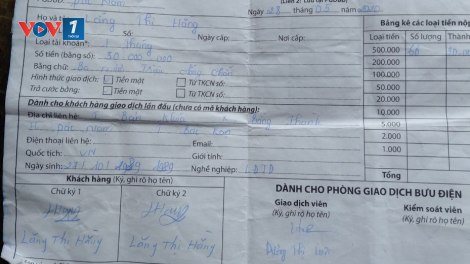 VOV1
(Liên 2: Lưu tại PGDBĐ)
Ngày 28 tháng 05
Bảng kê các loại tiền nộp
Họ và tên: Lăng Thị Hằng
Số: Ngày cấp: Nơi cấp:
Loại tiền Số lượng Thành
Loại tài khoản: 1 tháng
500.000 60
Số tiền (bằng số): 30 000 000
200.000
Bằng chữ: Ba mươi triệu đồng chẵn
100.000
Hình thức giao dịch: Tiền mặt Từ TKCN số:
50.000
Trả cước bằng: Tiền mặt Từ TKCN số:
20.000
Dành cho khách hàng giao dịch lần đầu (chưa có mã khách hàng):
10.000
Địa chỉ liên hệ: Bản
5.000
Bắc Kạn
2.000
Điện thoại liên hệ: Email:
1.000
Quốc tịch: VN Giới tính:
Ngày sinh: Nghề nghiệp: LĐTD
Tổng
Khách hàng (Ký, ghi rõ họ tên)
DÀNH CHO PHÒNG GIAO DỊCH BƯU ĐIỆN
Chữ ký 1 Chữ ký 2
Giao dịch viên Kiểm soát viên
(Ký, ghi rõ họ tên) (Ký, ghi rõ họ tên)
Lăng Thị Hằng Lăng Thị Hằng